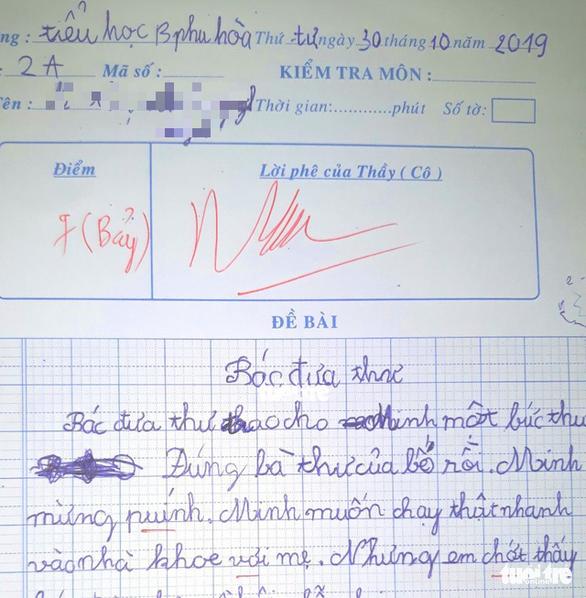 ng: tiểu học B phú hòa Thứ tư ngày 30 tháng 10 năm 2019
: 2A Mã số: KIỂM TRA MÔN:
ên: Thời gian:............phút Số tờ:
Điểm Lời phê của Thầy ( Cô )
7 (Bảy)
ĐỀ BÀI
Bác đưa thư
tuổi trẻ
Bác đưa thư trao cho Minh một bức thư
Đúng là thư của bố rồi. Minh
mừng puính. Minh muốn chạy thật nhanh
vào nhà khoe với mẹ. Nhưng em chợt thấy
tuổi trẻ
ONLINE